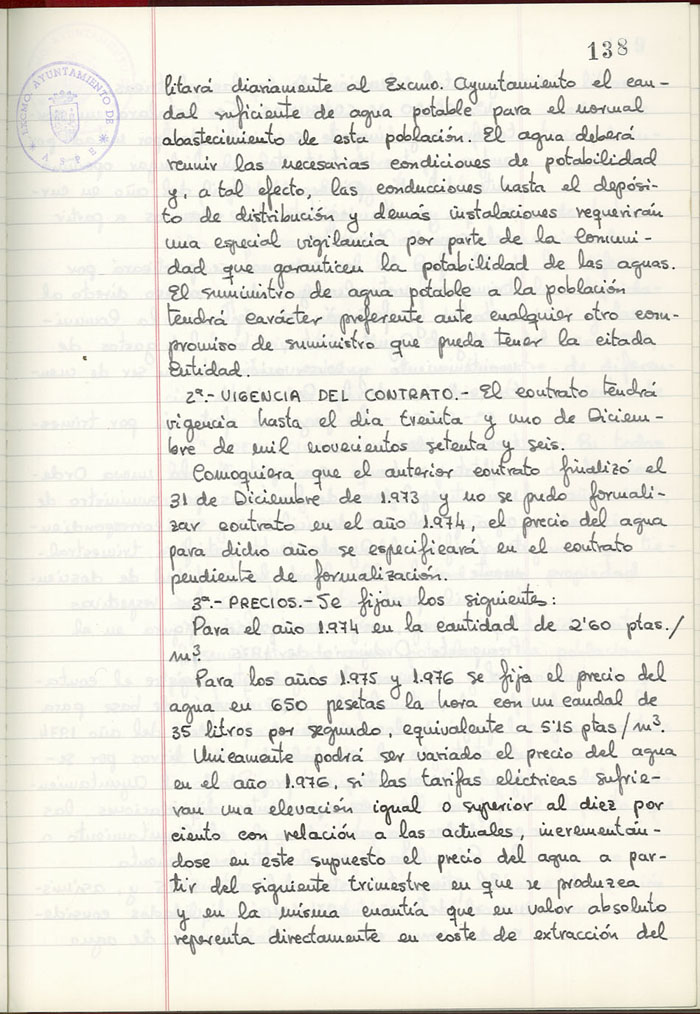 138
EXCMO. AYUNTAMIENTO DE
* ASPE *
litará diariamente al Excmo. Ayuntamiento el cau-
dal suficiente de agua potable para el normal
abastecimiento de esta población. El agua deberá
reunir las necesarias condiciones de potabilidad
y, a tal efecto, las conducciones hasta el depósi-
to de distribución y demás instalaciones requerirán
una especial vigilancia por parte de la Comuni-
dad que garanticen la potabilidad de las aguas.
El suministro de agua potable a la población
tendrá carácter preferente ante cualquier otro com-
promiso de suministro que pueda tener la citada
Entidad.
2ª.- VIGENCIA DEL CONTRATO.- El contrato tendrá
vigencia hasta el día treinta y uno de Diciem-
bre de mil novecientos setenta y seis.
Comoquiera que el anterior contrato finalizó el
31 de Diciembre de 1.973 y no se pudo formali-
zar contrato en el año 1.974, el precio del agua
para dicho año se especificará en el contrato
pendiente de formalización.
3ª.- PRECIOS.- Se fijan los siguientes:
Para el año 1.974 en la cantidad de 2'60 ptas./
m³.
Para los años 1.975 y 1.976 se fija el precio del
agua en 650 pesetas la hora con un caudal de
35 litros por segundo, equivalente a 5'15 ptas/m³.
Unicamente podrá ser variado el precio del agua
en el año 1.976, si las tarifas eléctricas sufrie-
ran una elevación igual o superior al diez por
ciento con relación a las actuales, incrementán-
dose en este supuesto el precio del agua a par-
tir del siguiente trimestre en que se produzca
y en la misma cuantía que en valor absoluto
reperenta directamente en coste de extracción del